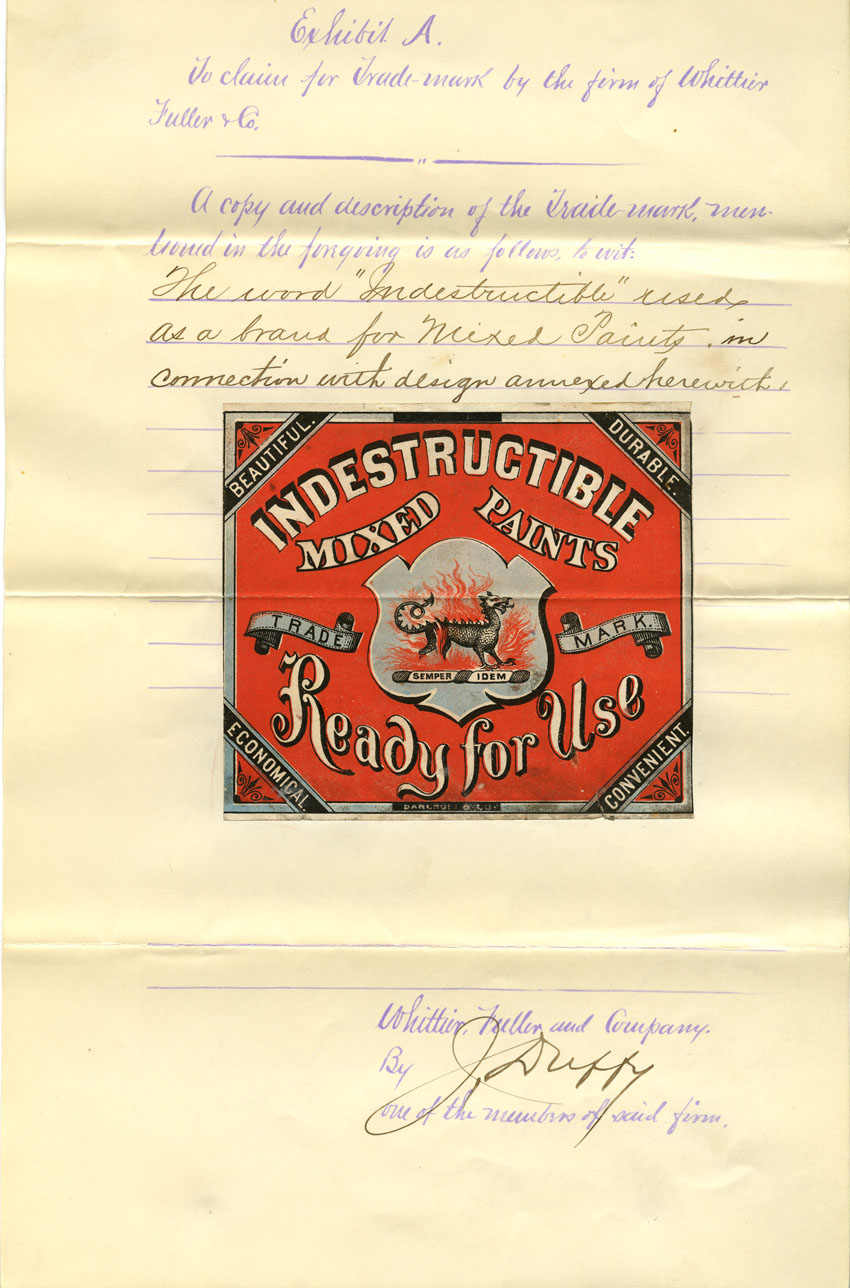 Exhibit A.
To claim for Trade-mark by the firm of Whittier
Fuller & Co.
A copy and description of the Trade-mark, men-
tioned in the foregoing is as follows, to wit:
The word "Indestructible" used
as a brand for Mixed Paints, in
connection with design annexed herewith.
BEAUTIFUL.
DURABLE.
INDESTRUCTIBLE
MIXED PAINTS
TRADE MARK.
SEMPER IDEM
Ready for Use
ECONOMICAL.
CONVENIENT.
Whittier, Fuller and Company.
By J. Duffy
one of the members of said firm.